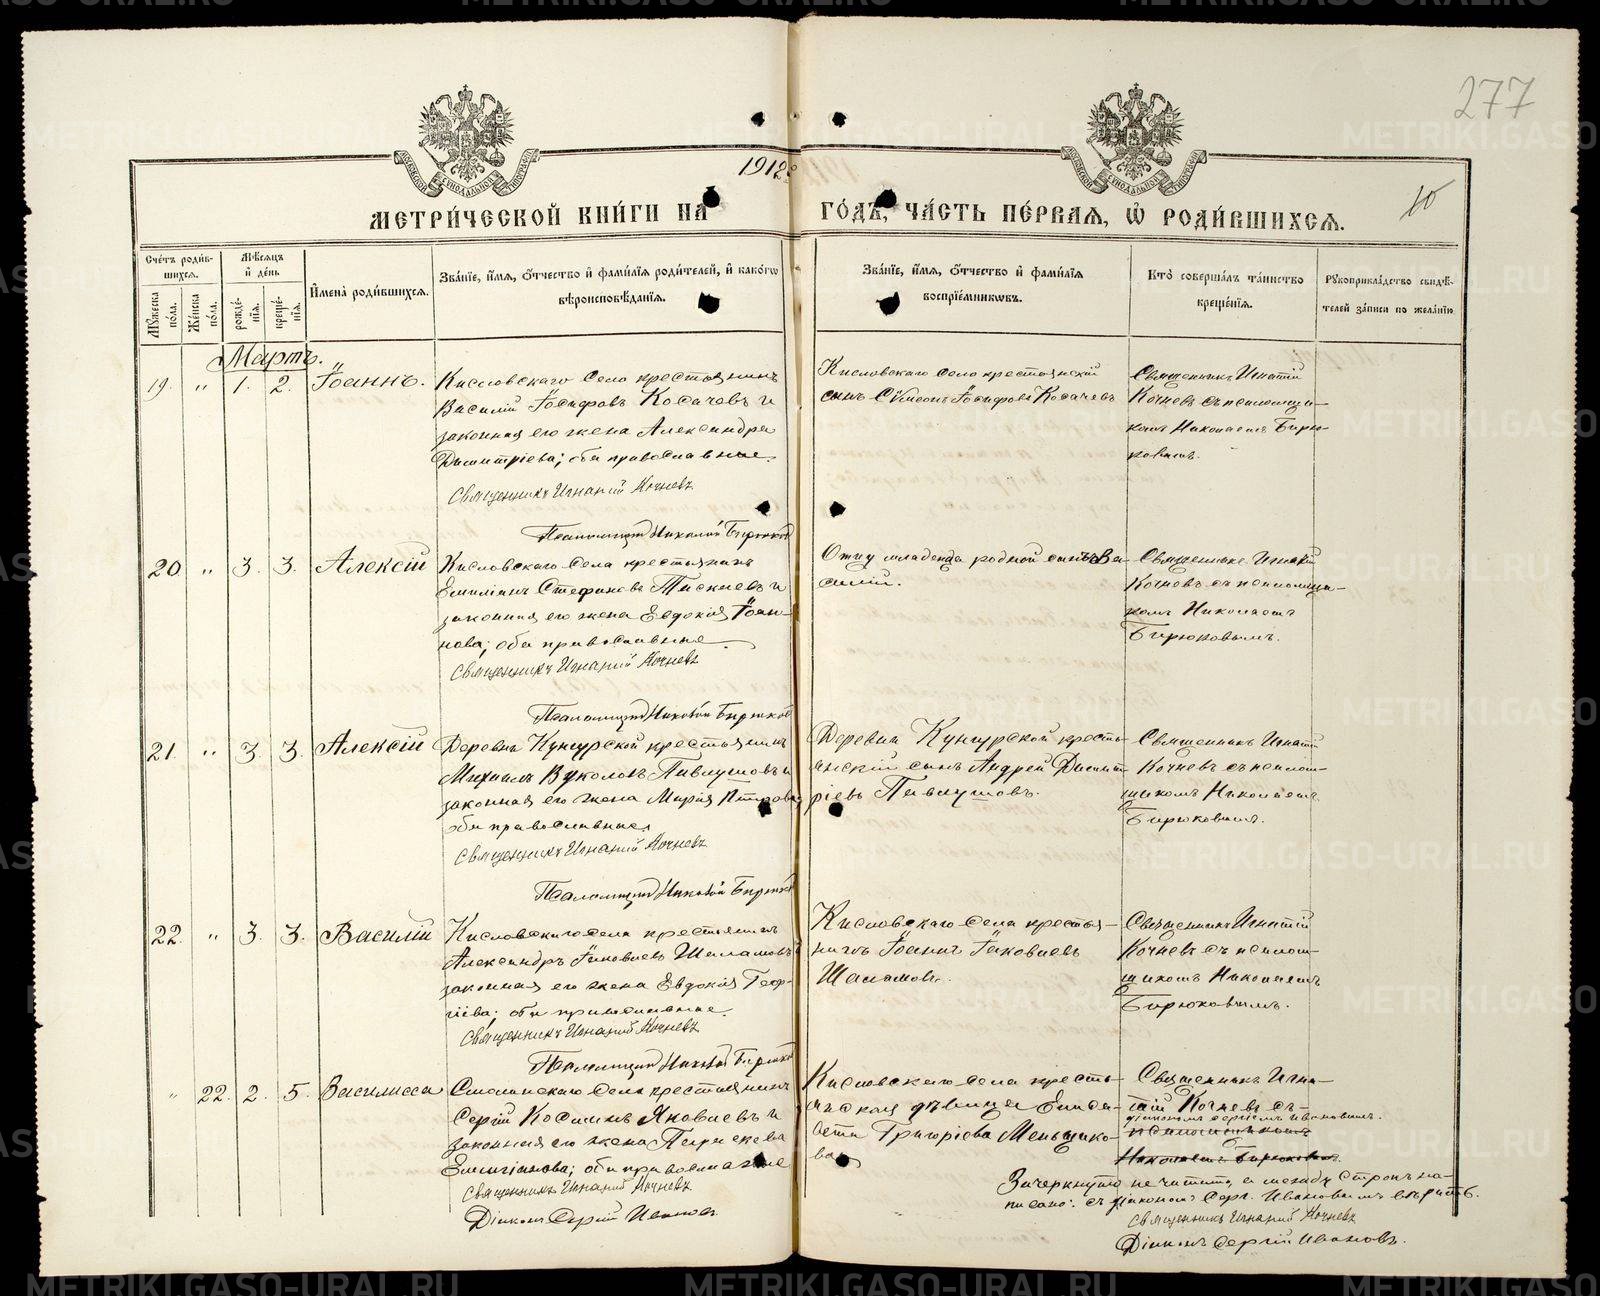 277
1912
10
МЕТРИ́ЧЕСКОЙ КНИ́ГИ НА ГО́ДЪ, ЧА́СТЬ ПЕ́РВАЯ, Ѡ҆ РОДИ́ВШИХСЯ.
Сче́тъ роди́в-
шихся.
Мꙋ́жеска по́ла.
Же́нска по́ла.
Мѣ́сяцъ
и҆ де́нь
рожде́-
нїя.
креще́-
нїя.
И҆мена̀ роди́вшихся.
Зва́нїе, и҆́мя, ѻ҆́тчество и҆ фами́лїя роди́телей, и҆ како́гѡ
вѣроисповѣ́данїя.
Зва́нїе, и҆́мя, ѻ҆́тчество и҆ фами́лїя
воспрїе́мникѡвъ.
Кто̀ соверша́лъ та́инство
креще́нїя.
Рꙋкоприкла́дство свидѣ́-
телей за́писи по жела́нїю.
Мартъ.
19. " 1. 2. Іоаннъ.
Кисловскаго села крестьянинъ
Василій Іосифовъ Косачевъ и
законная его жена Александра
Димитріева; оба православные.
Священникъ Игнатій Кочневъ
Псаломщикъ Николай Бирюковъ
Кисловскаго села крестьянскій
сынъ Сѵмеонъ Іосифовъ Косачевъ
Священникъ Игнатій
Кочневъ съ псаломщи-
комъ Николаемъ Бирю-
ковымъ.
20. " 3. 3. Алексій
Кисловскаго села крестьянинъ
Емиліанъ Стефановъ и
законная его жена Евдокія Іоан-
нова; оба православные
Священникъ Игнатій Кочневъ
Псаломщикъ Николай Бирюковъ
Отцу младенца родной сынъ Ва-
силій.
Священникъ Игнатій
Кочневъ съ псаломщи-
комъ Николаемъ
Бирюковымъ.
21. " 3. 3. Алексій
Деревни Кунгурской крестьянинъ
Михаилъ Вуколовъ Павлушовъ и
законная его жена Марія Петрова
оба православные
Священникъ Игнатій Кочневъ
Псаломщикъ Николай Бирюковъ
Деревни Кунгурской кресть-
янскій сынъ Андрей Димит-
ріевъ Павлушовъ.
Священникъ Игнатій
Кочневъ съ псалом-
щикомъ Николаемъ
Бирюковымъ.
22. " 3. 3. Василій
Кисловскаго села крестьянинъ
Александръ Іаковлевъ Шаламовъ
законная его жена Евдокія Геор-
гіева; оба православные.
Священникъ Игнатій Кочневъ
Псаломщикъ Николай Бирюковъ
Кисловскаго села кресть-
нинъ Іоаннъ Іаковлевъ
Шаламовъ.
Священникъ Игнатій
Кочневъ съ псалом-
щикомъ Николаемъ
Бирюковымъ.
" 22. 2. 5. Василисса
Смолинскаго села крестьянинъ
Сергій Косминъ Яковлевъ и
законная его жена Параскева
Емиліанова; оба православные
Священникъ Игнатій Кочневъ
Діаконъ Сергій Ивановъ
Кисловскаго села кресть-
янская дѣвица Елиса-
вета Григоріева Меньщико-
ва
Священникъ Игна-
тій Кочневъ съ
діакономъ Сергіемъ Ивановымъ.
псаломщикомъ
Николаемъ Бирюковымъ.
Зачеркнутое не читать, а между строкъ на-
писано: съ діакономъ Серг. Ивановымъ вѣрить.
Священникъ Игнатій Кочневъ
Діаконъ Сергій Ивановъ.
METRIKI.GASO-URAL.RU